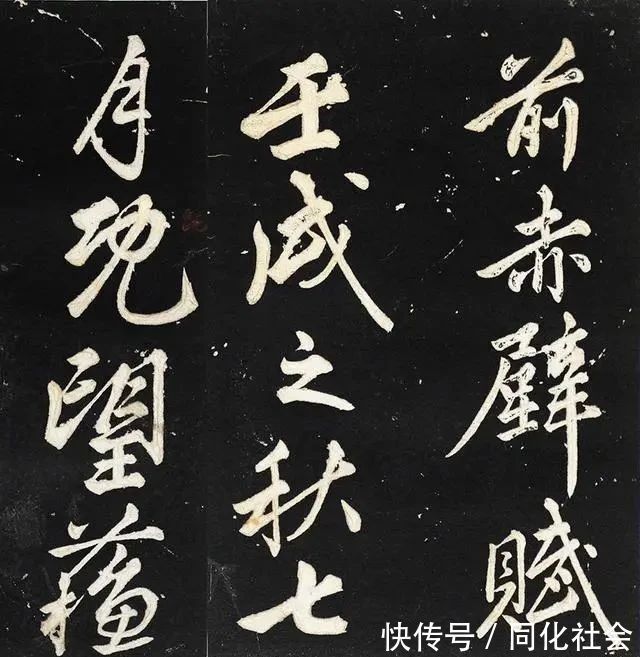 前赤壁賦
壬戌之秋七
月既望蘇
快传号/同化社会